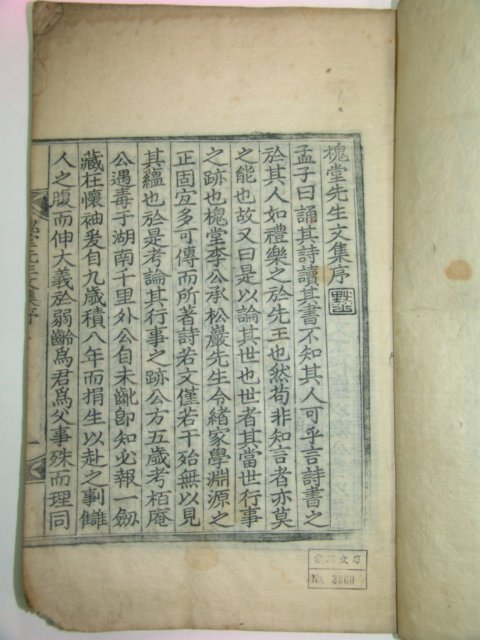 槐堂先生文集序
孟子曰誦其詩讀其書不知其人可乎言詩書之
於其人如禮樂之於先王也然苟非知言者亦莫
之能也故又曰是以論其世也世者其當世行事
之跡也槐堂李公承松巖先生令緖家學淵源之
正固宜多可傳而所著詩若文僅若干殆無以見
其蘊也於是考論其行事之跡公方五歲考栢庵
公遇毒于湖南千里外公自未齔卽知必報一劒
藏在懷袖爰自九歲積八年而捐生以赴之剚讎
人之腹而伸大義於弱齡爲君爲父事殊而理同
文集序
一
文庫
No. 2660